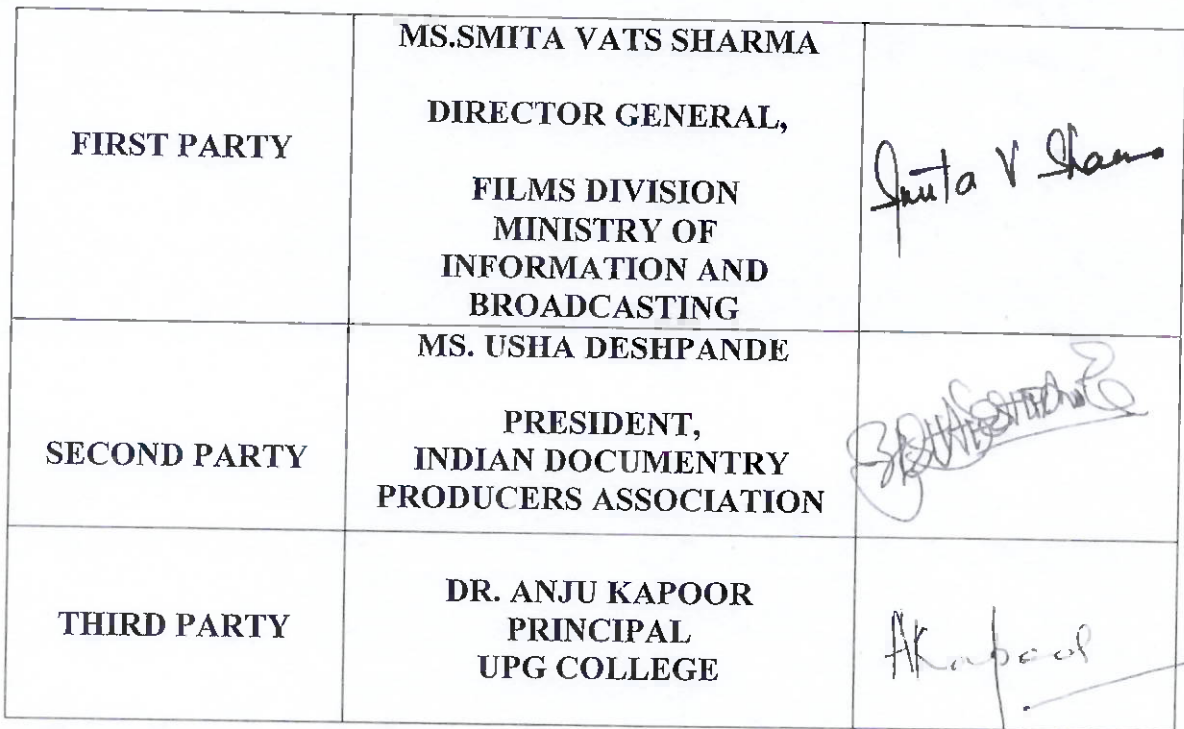 MS.SMITA VATS SHARMA
DIRECTOR GENERAL,
FIRST PARTY
FILMS DIVISION
MINISTRY OF
INFORMATION AND
BROADCASTING
Smita V Sharma
MS. USHA DESHPANDE
PRESIDENT,
SECOND PARTY
INDIAN DOCUMENTRY
PRODUCERS ASSOCIATION
THIRD PARTY
DR. ANJU KAPOOR
PRINCIPAL
UPG COLLEGE
AKapoor